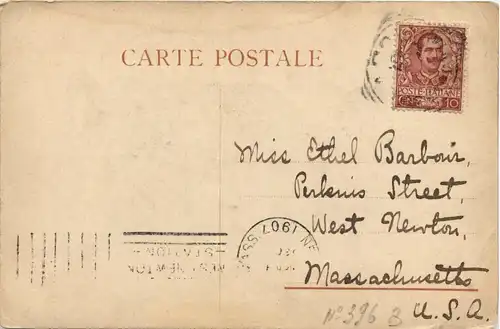 CARTE POSTALE
POSTE ITALIANE
10
Miss Ethel Barbour,
Perkins Street,
West Newton,
Massachusetts
U.S.A.
Nº 396
1907
MASS.
WEST NEWTON
STATION